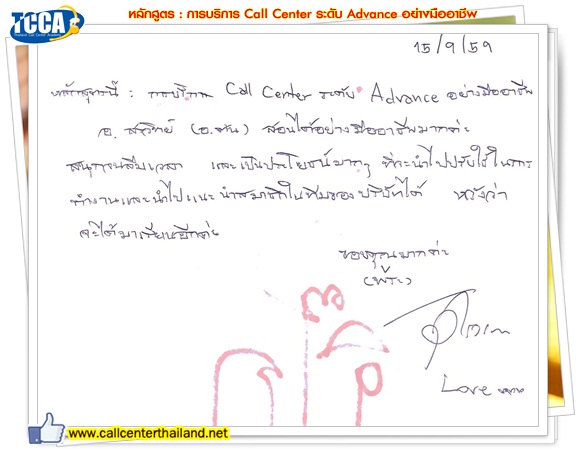 TCCA
Thailand Call Center Academy
หลักสูตร : การบริการ Call Center ระดับ Advance อย่างมืออาชีพ
15/9/59
หลักสูตรนี้ : การบริการ Call Center ระดับ Advance อย่างมืออาชีพ
(อ. สหวิทย์ (อ.ตั้น) สอนได้อย่างมืออาชีพมากค่ะ
สนุกจนลืมเวลา และเป็นประโยชน์มากๆ ที่จะนำไปปรับใช้ในการ
ทำงานและนำไปแนะนำสมาชิกในทีมของบริษัทได้ หวังว่า
จะได้มาเรียนอีกค่ะ
ขอบคุณมากค่ะ
Love
www.callcenterthailand.net